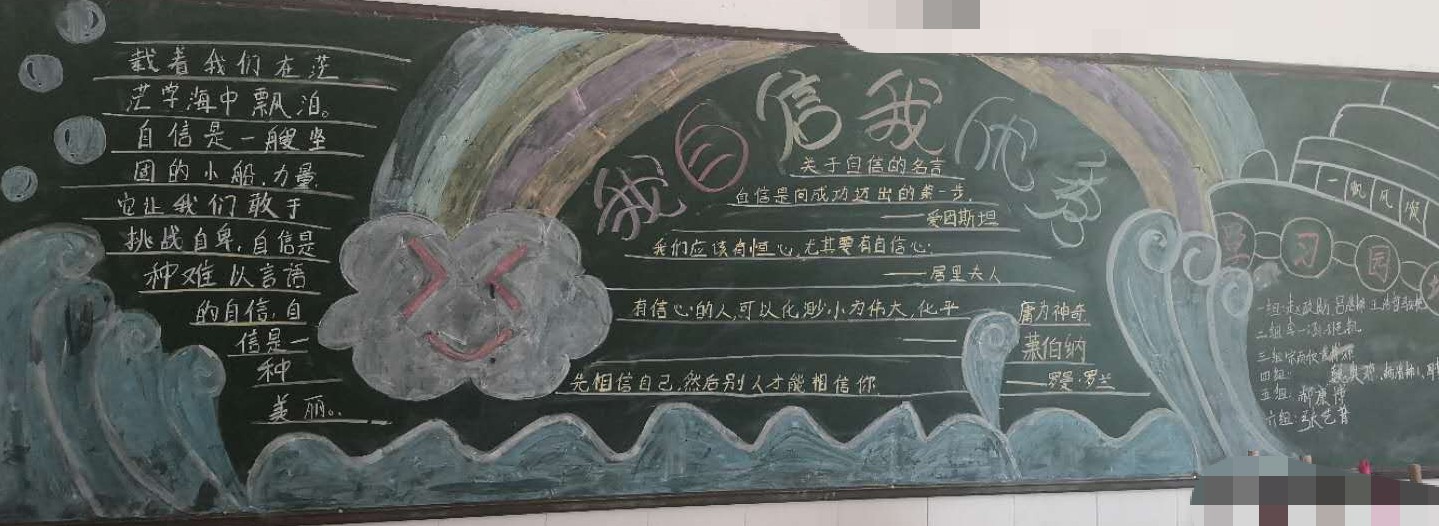 载着我们在茫
茫学海中飘泊。
自信是一艘坚
固的小船,力量
它让我们敢于
挑战自卑,自信是
种难以言语
的自信,自
信是一
种
美丽。
我自信我优秀
关于自信的名言
自信是向成功迈出的第一步,
——爱因斯坦
我们应该有恒心,尤其要有自信心.
——居里夫人
有信心的人,可以化渺小为伟大,化平
庸为神奇
——
萧伯纳
先相信自己,然后别人才能相信你
——罗曼·罗兰
一帆风顺
学习园
一组:
二组:
三组:
四组:
五组:郝康博
六组:张艺